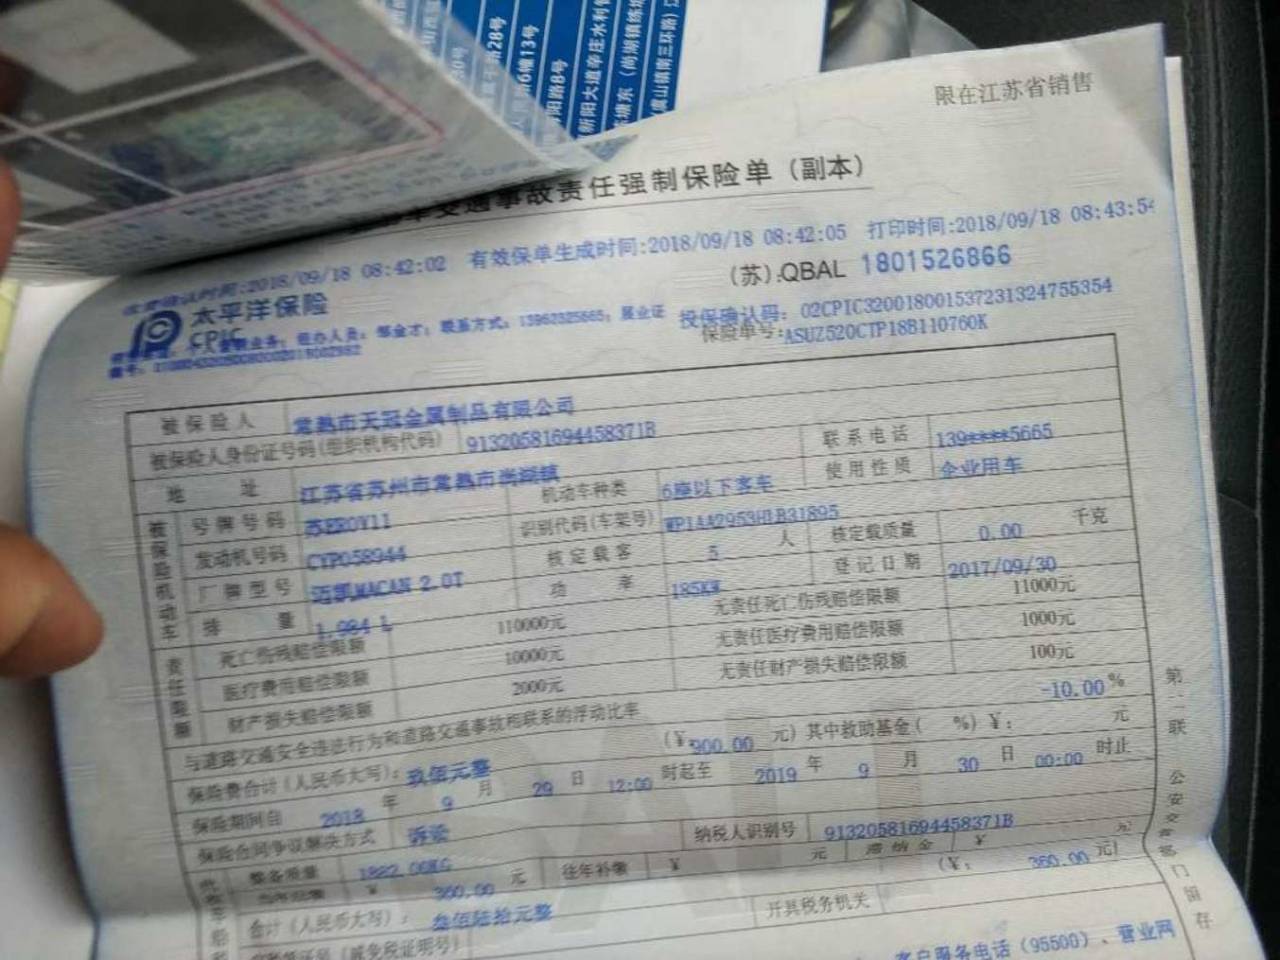 限在江苏省销售
事故责任强制保险单（副本）
投保确认时间:2018/09/18 08:42:02 有效保单生成时间:2018/09/18 08:42:05 打印时间:2018/09/18 08:43:54
太平洋保险
CPIC
(苏).QBAL 1801526866
经办人员：邹金才；联系方式：13962325665；展业证
投保确认码：02CPIC320018001537231324755354
保险单号:ASUZ520CTP18B110760K
被保险人 常熟市天冠金属制品有限公司
被保险人身份证号码(组织机构代码) 91320581694458371B 联系电话 139****5665
地址 江苏省苏州市常熟市尚湖镇 机动车种类 6座以下客车 使用性质 企业用车
被保险机动车
号牌号码 苏E8OY11 识别代码(车架号) WP1AA2953HLB31895
发动机号码 CYP058944 核定载客 5 人 核定载质量 0.00 千克
厂牌型号 迈凯MACAN 2.0T 功率 185KW 登记日期 2017/09/30
排量 1.984 L
责任限额
死亡伤残赔偿限额 110000元 无责任死亡伤残赔偿限额 11000元
医疗费用赔偿限额 10000元 无责任医疗费用赔偿限额 1000元
财产损失赔偿限额 2000元 无责任财产损失赔偿限额 100元
与道路交通安全违法行为和道路交通事故相联系的浮动比率 -10.00 %
保险费合计(人民币大写)：玖佰元整 (￥:900.00 元) 其中救助基金( %)￥： 元
保险期间自 2018 年 9 月 29 日 12:00 时起至 2019 年 9 月 30 日 00:00 时止
保险合同争议解决方式 诉讼
整备质量 1882.00KG 纳税人识别号 91320581694458371B
当年应缴 ￥ 360.00 元 往年补缴 ￥ 元 滞纳金 ￥ 元
合计(人民币大写)：叁佰陆拾元整 (￥: 360.00 元)
(减免税证明号) 开具税务机关
客户服务电话(95500)、营业网
第二联 公安交管部门留存
路28号
路6幢13号
阳路8号
新阳大道辛庄水利
东（尚湖镇练塘
(虞山镇南三环路)